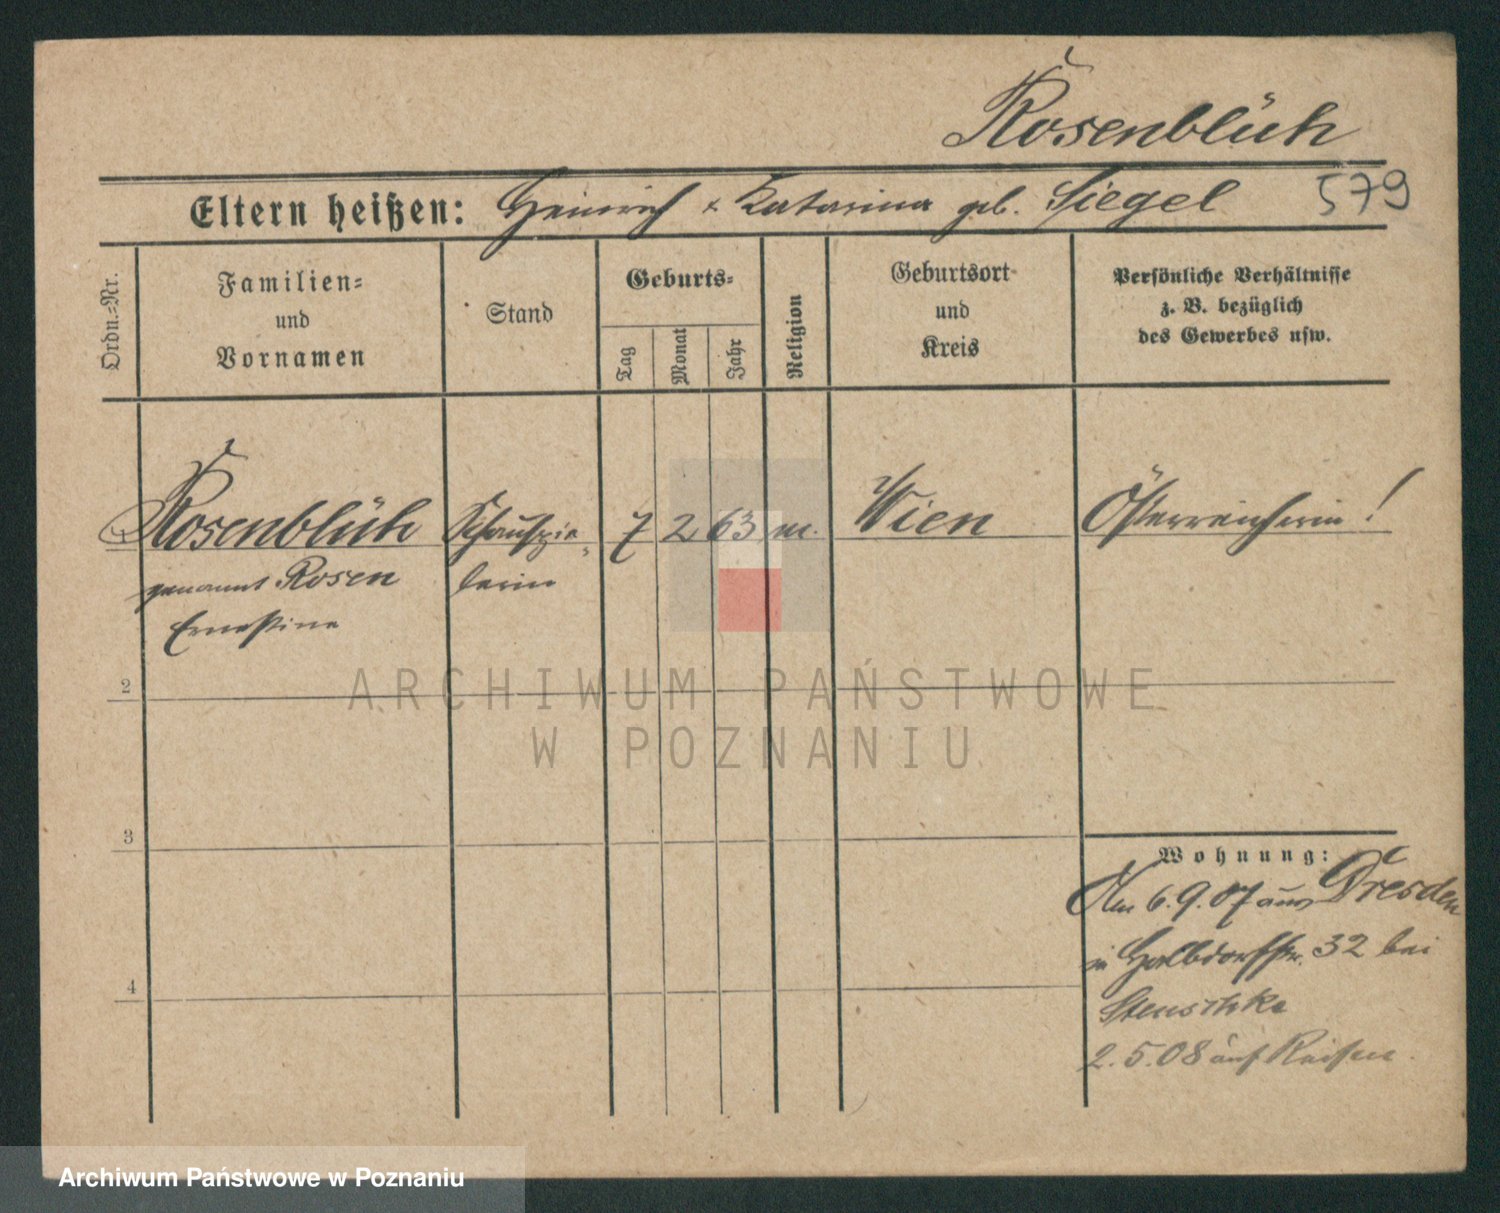 Rosenblüh
Eltern heißen: Heinrich & Katarina geb. Siegel 579
Ordn.-Nr.
Familien-
und
Vornamen
Stand
Geburts-
Tag
Monat
Jahr
Religion
Geburtsort
und
Kreis
Persönliche Verhältnisse
z. B. bezüglich
des Gewerbes usw.
Rosenblüh Schauspie- 7 2 63 m. Wien Österreicherin!
genannt Rosen lerin
Ernestine
2
3
4
Wohnung:
Am 6.9.07 aus Dresden
in Halbdorfstr. 32 bei
Stenschke
2.5.08 auf Reisen.
ARCHIWUM PAŃSTWOWE
W POZNANIU
Archiwum Państwowe w Poznaniu